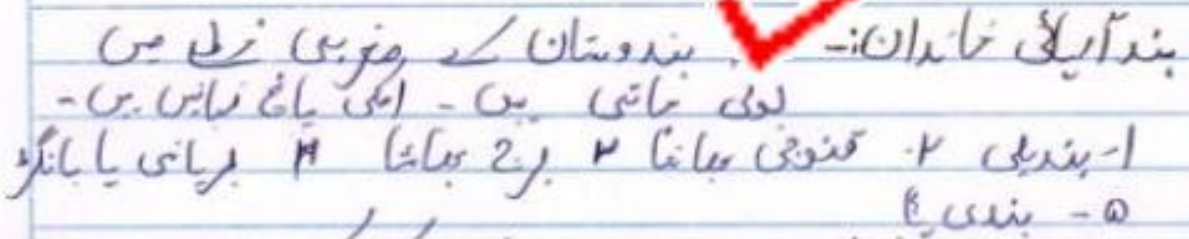 ہند آریائی خاندان:- ہندوستان کے مغربی خطے میں
بولی جاتی ہیں - اسکی پانچ زبانیں ہیں -
۱- بندیلی ۲- قنوجی بھاشا ۳ برج بھاشا ۴ ہریانی یا بانگڑو
۵ - ہندی یا